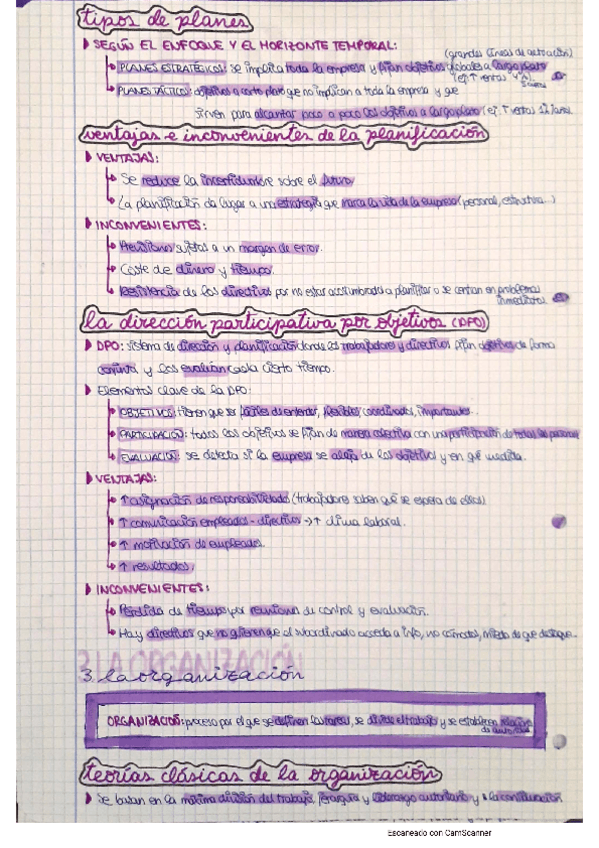 tipos de planes
SEGÚN EL ENFOQUE Y EL HORIZONTE TEMPORAL:
(grandes líneas de actuación)
PLANES ESTRATÉGICOS: se implica toda la empresa y fijan objetivos globales a largo plazo
(ej. ↑ ventas
PLANES TÁCTICOS: objetivos a corto plazo que no implican a toda la empresa y que
sirven para alcanzar poco a poco los objetivos a largo plazo (ej. ↑ ventas 12
ventajas e inconvenientes de la planificación
VENTAJAS:
Se reduce la incertidumbre sobre el futuro
La planificación da lugar a una estrategia que marca la vida de la empresa (personal, estructura...)
INCONVENIENTES:
Previsiones sujetas a un margen de error.
Coste de dinero y tiempo.
Resistencia de los directivos por no estar acostumbrados a planificar o se centran en problemas
inmediatos.
la dirección participativa por objetivos (DPO)
DPO: sistema de dirección y planificación donde los trabajadores y directivos fijan objetivos de forma
conjunta y los evalúan cada cierto tiempo.
Elementos clave de la DPO:
OBJETIVOS: tienen que ser fáciles de entender, flexibles, coordinados, importantes.
PARTICIPACIÓN: todos los objetivos se fijan de manera colectiva con una participación de todas las personas
EVALUACIÓN: se detecta si la empresa se aleja de los objetivos y en qué medida.
VENTAJAS:
↑ asignación de responsabilidades (trabajadores saben qué se espera de ellos)
↑ comunicación empleados - directivos → ↑ clima laboral.
↑ motivación de empleados.
↑ resultados.
INCONVENIENTES:
Pérdida de tiempo por reuniones de control y evaluación.
Hay directivos que no quieren que el subordinado acceda a info, no cómodos, miedo de que destaque.
3. LA ORGANIZACIÓN
3. la organización
ORGANIZACIÓN: proceso por el que se definen las tareas, se divide el trabajo y se establecen relaciones
de autoridad
teorías clásicas de la organización
Se basan en la máxima división del trabajo, jerarquía y liderazgo autoritario y
Escaneado con CamScanner